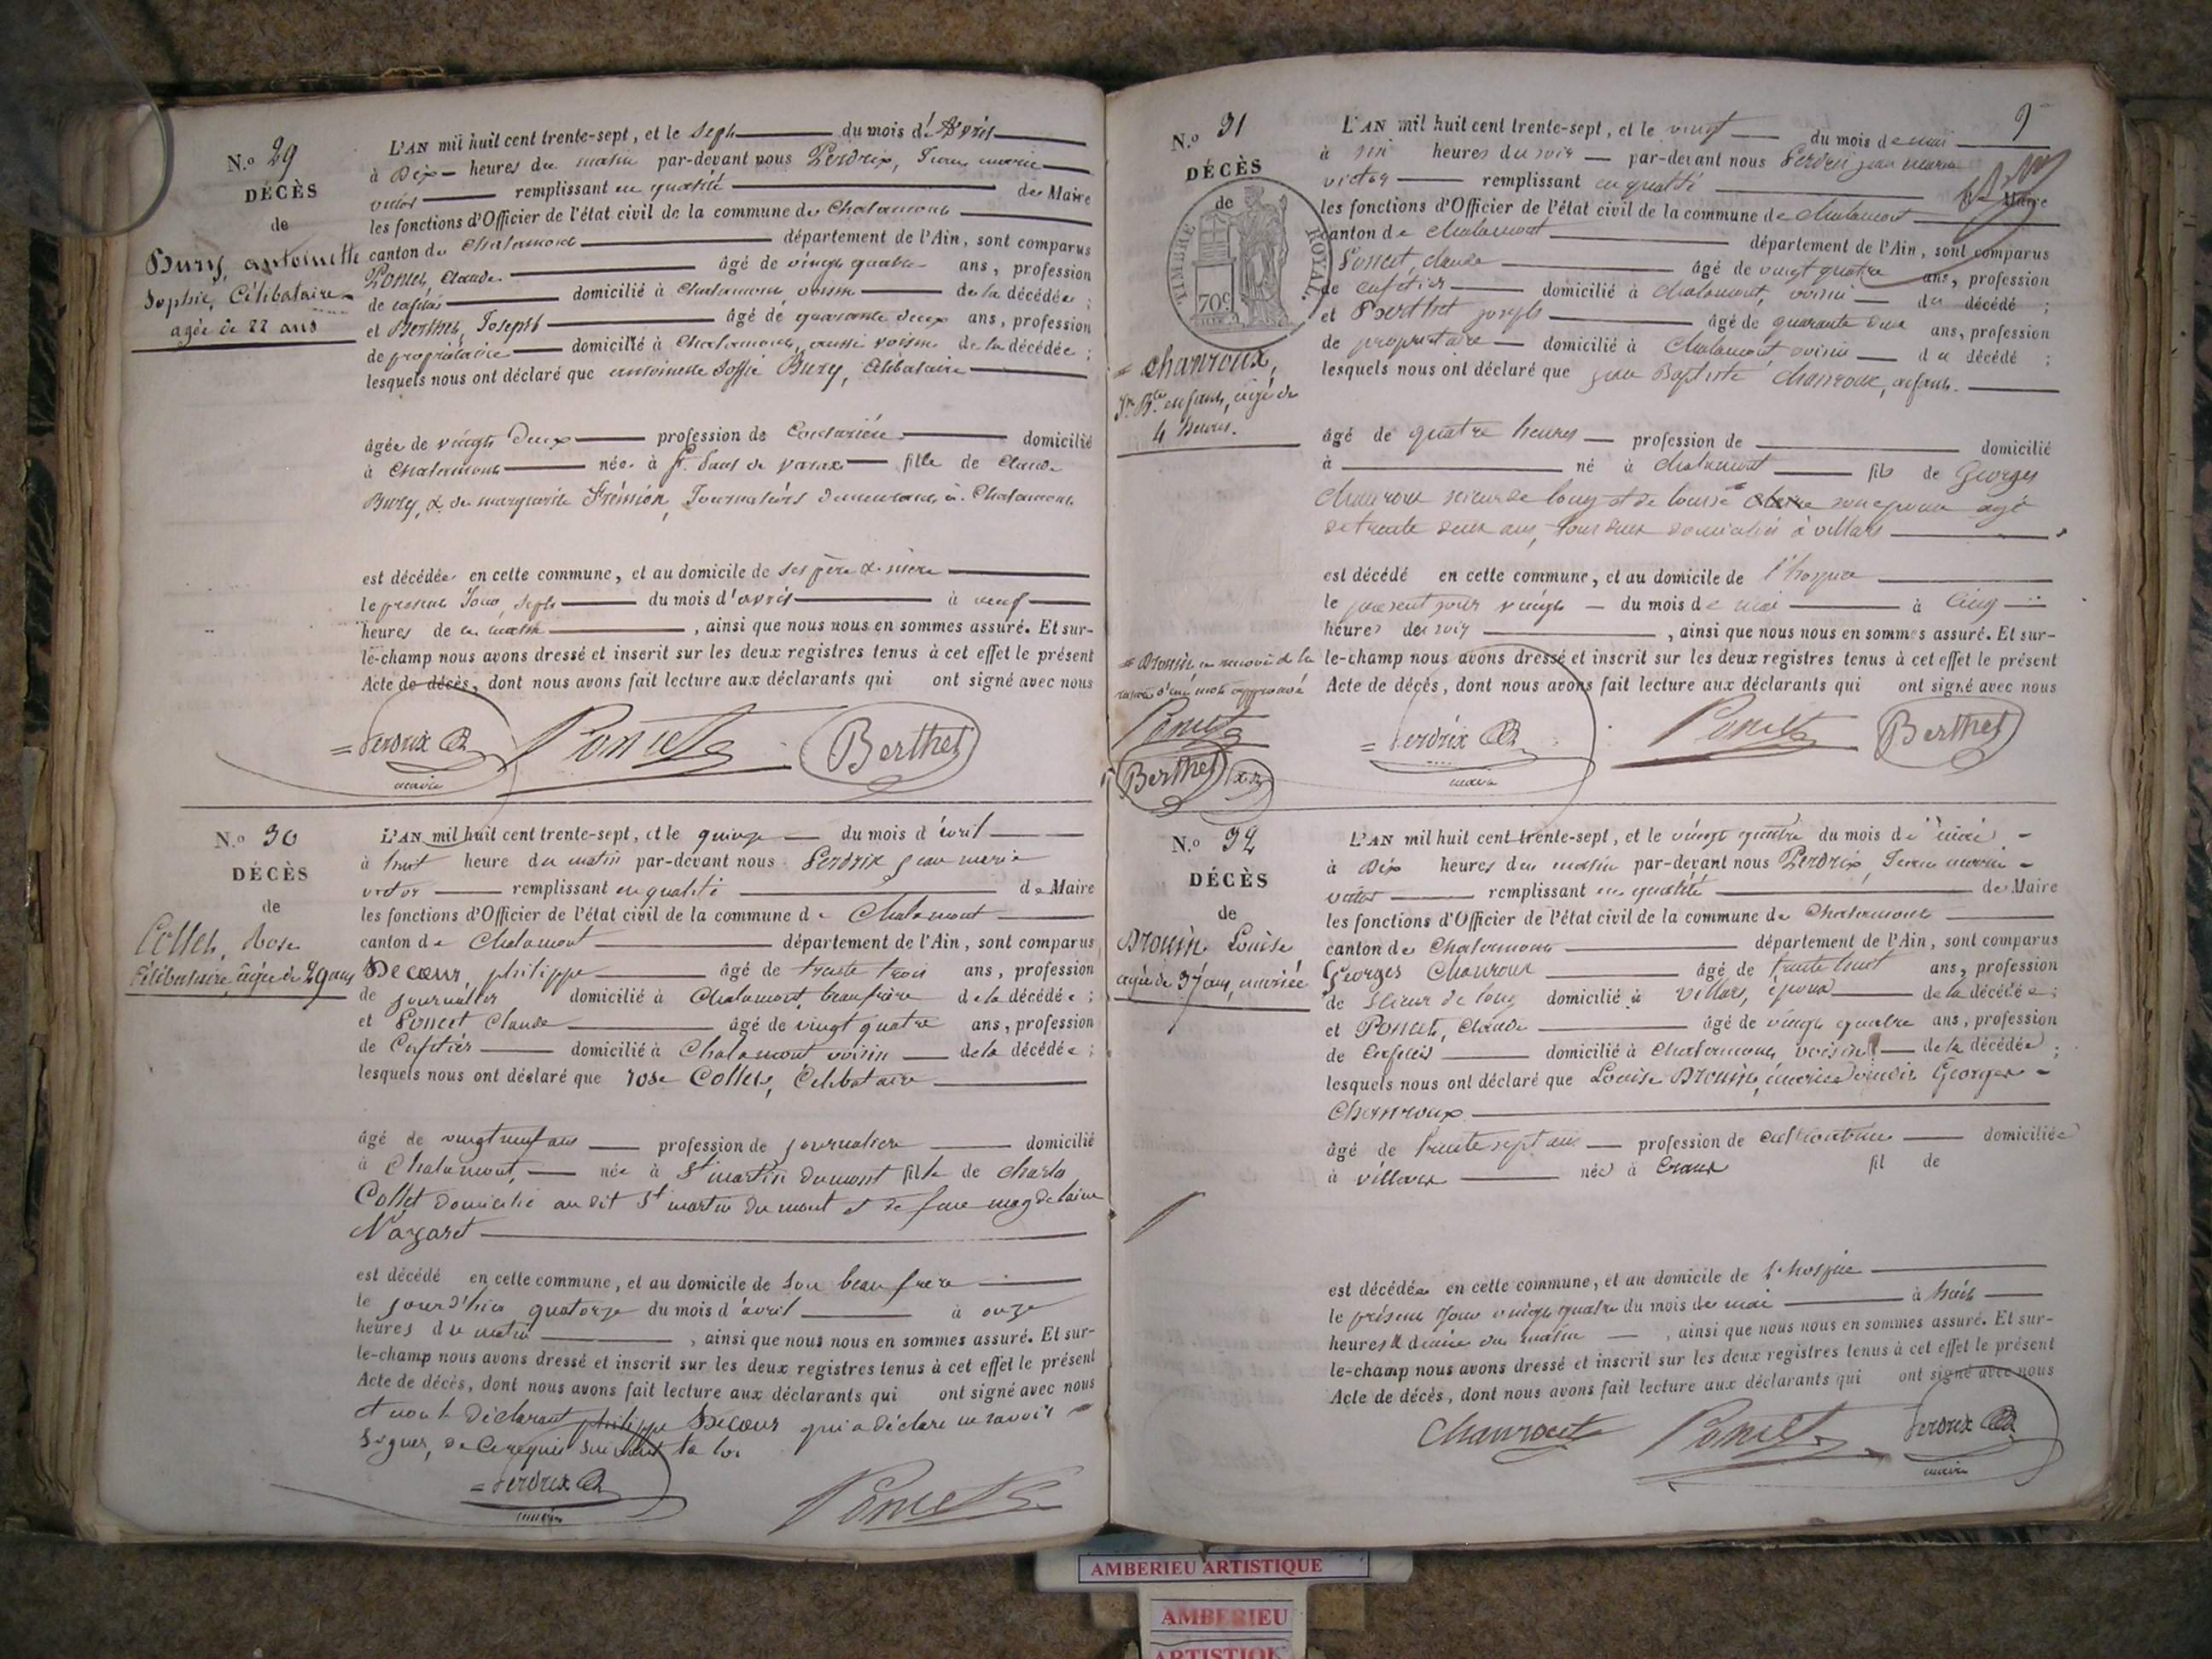 N.o 29
DÉCÈS
de
Bury, antoinette
Sophie, Célibataire
agée de 22 ans
L'AN mil huit cent trente-sept, et le Sept du mois d'Avril
à Dix heures du matin par-devant nous Perdrix, Jean marie
victor remplissant en qualité de Maire
les fonctions d'Officier de l'état civil de la commune de Chalamont
canton de Chalamont département de l'Ain, sont comparus
Poncet, Claude âgé de vingt quatre ans, profession
de cafetier domicilié à Chalamont, voisin de la décédée ;
et Berthet, Joseph âgé de quarante deux ans, profession
de propriétaire domicilié à Chalamont, aussi voisin de la décédée ;
lesquels nous ont déclaré que antoinette Soffie Bury, Célibataire
âgée de vingt deux profession de Couturière domicilié
à Chalamont née à St. Paul de varax fille de Claude
Bury, & de marguerite Journaliers demeurant à Chalamont
est décédée en cette commune, et au domicile de ses père & mère
le présent Jour, Sept du mois d'avril à neuf
heures de du matin, ainsi que nous nous en sommes assuré. Et sur-
le-champ nous avons dressé et inscrit sur les deux registres tenus à cet effet le présent
Acte de décès, dont nous avons fait lecture aux déclarants qui ont signé avec nous
Perdrix Poncet Berthet
maire
N.o 30
DÉCÈS
de
Collet, Rose
Célibataire, âgée de 29 ans
L'AN mil huit cent trente-sept, et le quinze du mois d'avril
à huit heure du matin par-devant nous Perdrix jean marie
victor remplissant en qualité de Maire
les fonctions d'Officier de l'état civil de la commune de Chalamont
canton de Chalamont département de l'Ain, sont comparus
Decœur, philippe âgé de trente trois ans, profession
de journalier domicilié à Chalamont, beaufrère de la décédée ;
et Poncet Claude âgé de vingt quatre ans, profession
de Cafetier domicilié à Chalamont voisin de la décédée ;
lesquels nous ont déclaré que rose Collet, Célibataire
âgé de vingt neuf ans profession de journalière domicilié
à Chalamont, née à St martin dumont fille de charles
Collet domicilié au dit St martin du mont et de feue magdelaine
Nazaret
est décédé en cette commune, et au domicile de son beau frère
le jour d'hier quatorze du mois d'avril à onze
heures du matin, ainsi que nous nous en sommes assuré. Et sur-
le-champ nous avons dressé et inscrit sur les deux registres tenus à cet effet le présent
Acte de décès, dont nous avons fait lecture aux déclarants qui ont signé avec nous
et non le déclarant philippe Decœur qui a déclaré ne savoir
signer, de ce requis suivant la loi
Perdrix Poncet
maire
9
N.o 31
DÉCÈS
de
TIMBRE ROYAL.
70c.
chanroux,
Jn. Bte. enfant, âgé de
4 heures.
L'AN mil huit cent trente-sept, et le vingt du mois de mai
à six heures du soir par-devant nous Perdrix jean marie
victor remplissant en qualité de Maire
les fonctions d'Officier de l'état civil de la commune de chalamont
canton de chalamont département de l'Ain, sont comparus
Poncet, claude âgé de vingt quatre ans, profession
de cafetier domicilié à chalamont, voisin du décédé ;
et Berthet joseph âgé de quarante deux ans, profession
de propriétaire domicilié à Chalamont voisin du décédé ;
lesquels nous ont déclaré que jean Baptiste chanroux, enfant.
âgé de quatre heures profession de domicilié
à né à chalamont fils de Georges
chanroux scieur de long et de son épouse agé
de trente deux ans, tous deux domiciliés à villars
est décédé en cette commune, et au domicile de l'hospice
le présent jour vingt du mois de mai à cinq
heures du soir, ainsi que nous nous en sommes assuré. Et sur-
le-champ nous avons dressé et inscrit sur les deux registres tenus à cet effet le présent
Acte de décès, dont nous avons fait lecture aux déclarants qui ont signé avec nous
= Drouin
d'un mot approuvé
Poncet
Berthet
Perdrix Poncet Berthet
maire
N.o 32
DÉCÈS
de
Drouin Louise
agée de 37 ans, mariée
L'AN mil huit cent trente-sept, et le vingt quatre du mois de mai
à Dix heures du matin par-devant nous Perdrix, Jean marie
victor remplissant en qualité de Maire
les fonctions d'Officier de l'état civil de la commune de Chalamont
canton de Chalamont département de l'Ain, sont comparus
Georges Chanroux âgé de trente huit ans, profession
de Scieur de long domicilié à Villars, époux de la décédée ;
et Poncet, Claude âgé de vingt quatre ans, profession
de Cafetier domicilié à Chalamont, voisin de la décédée ;
lesquels nous ont déclaré que Louise Drouin, Georges
Chanroux
âgé de trente sept ans profession de cultivatrice domiciliée
à villars née à Crans fil de
est décédée en cette commune, et au domicile de l'hospice
le présent Jour vingt quatre du mois de mai à huit
heures & demie du matin, ainsi que nous nous en sommes assuré. Et sur-
le-champ nous avons dressé et inscrit sur les deux registres tenus à cet effet le présent
Acte de décès, dont nous avons fait lecture aux déclarants qui ont signé avec nous
Chanroux Poncet Perdrix
maire
AMBERIEU ARTISTIQUE
AMBERIEU
ARTISTIQUE